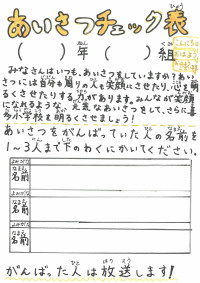 あいさつチェック表
(　)年(　)組
みなさんはいつも、あいさつをしていますか？あい
さつには自分も周りの人も笑顔にさせたり、心を明
るくさせたりする力があります。みんなが笑顔
になれるような、元気なあいさつをして、さらに喜
多小学校を明るくさせましょう！
あいさつをがんばっていた人の名前を
1～3人まで下のわくにかいてください。
名前
名前
名前
がんばった人は放送します！